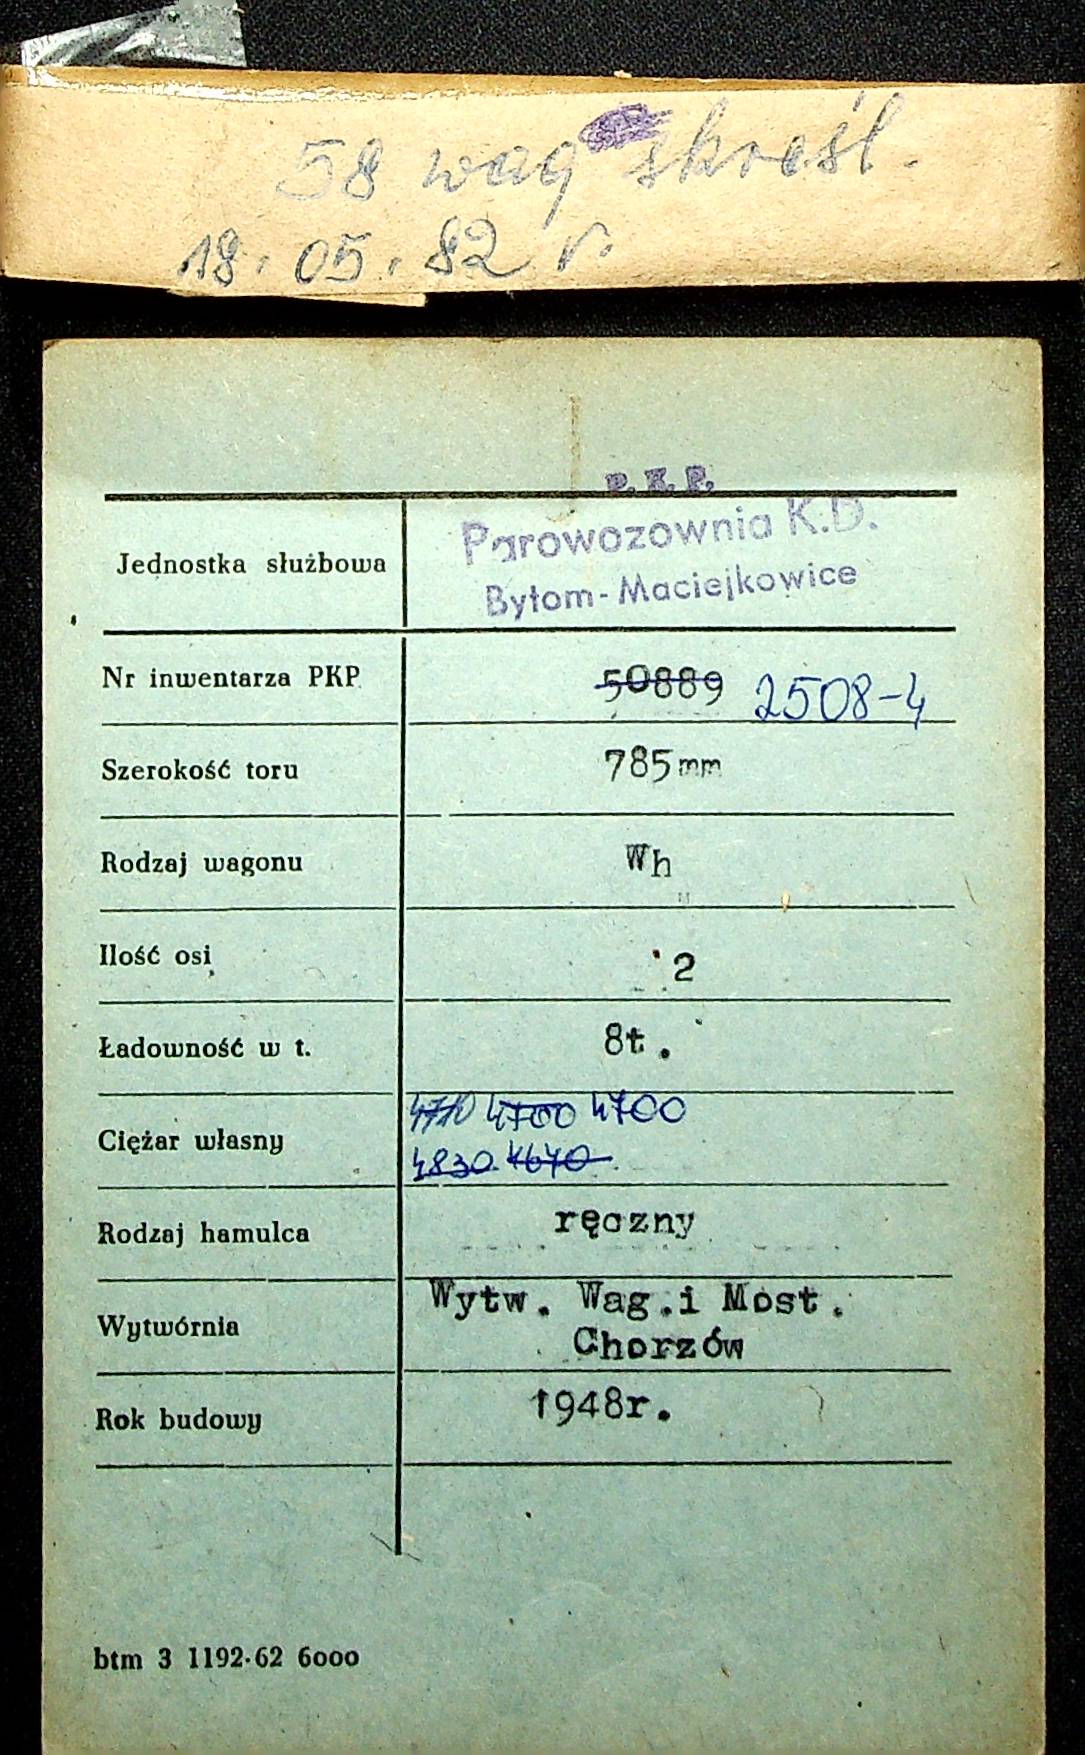 58 wag skreśl.
18. 05. 82 r.
P. K. P.
Parowozownia K.D.
Bytom-Maciejkowice
Jednostka służbowa
Nr inwentarza PKP 50889 2508-4
Szerokość toru 785mm
Rodzaj wagonu Wh
Ilość osi 2
Ładowność w t. 8t.
4710 4700 4700
Ciężar własny
4830 4640
Rodzaj hamulca ręczny
Wytw. Wag. i Most.
Wytwórnia
Chorzów
Rok budowy 1948r.
btm 3 1192-62 6000